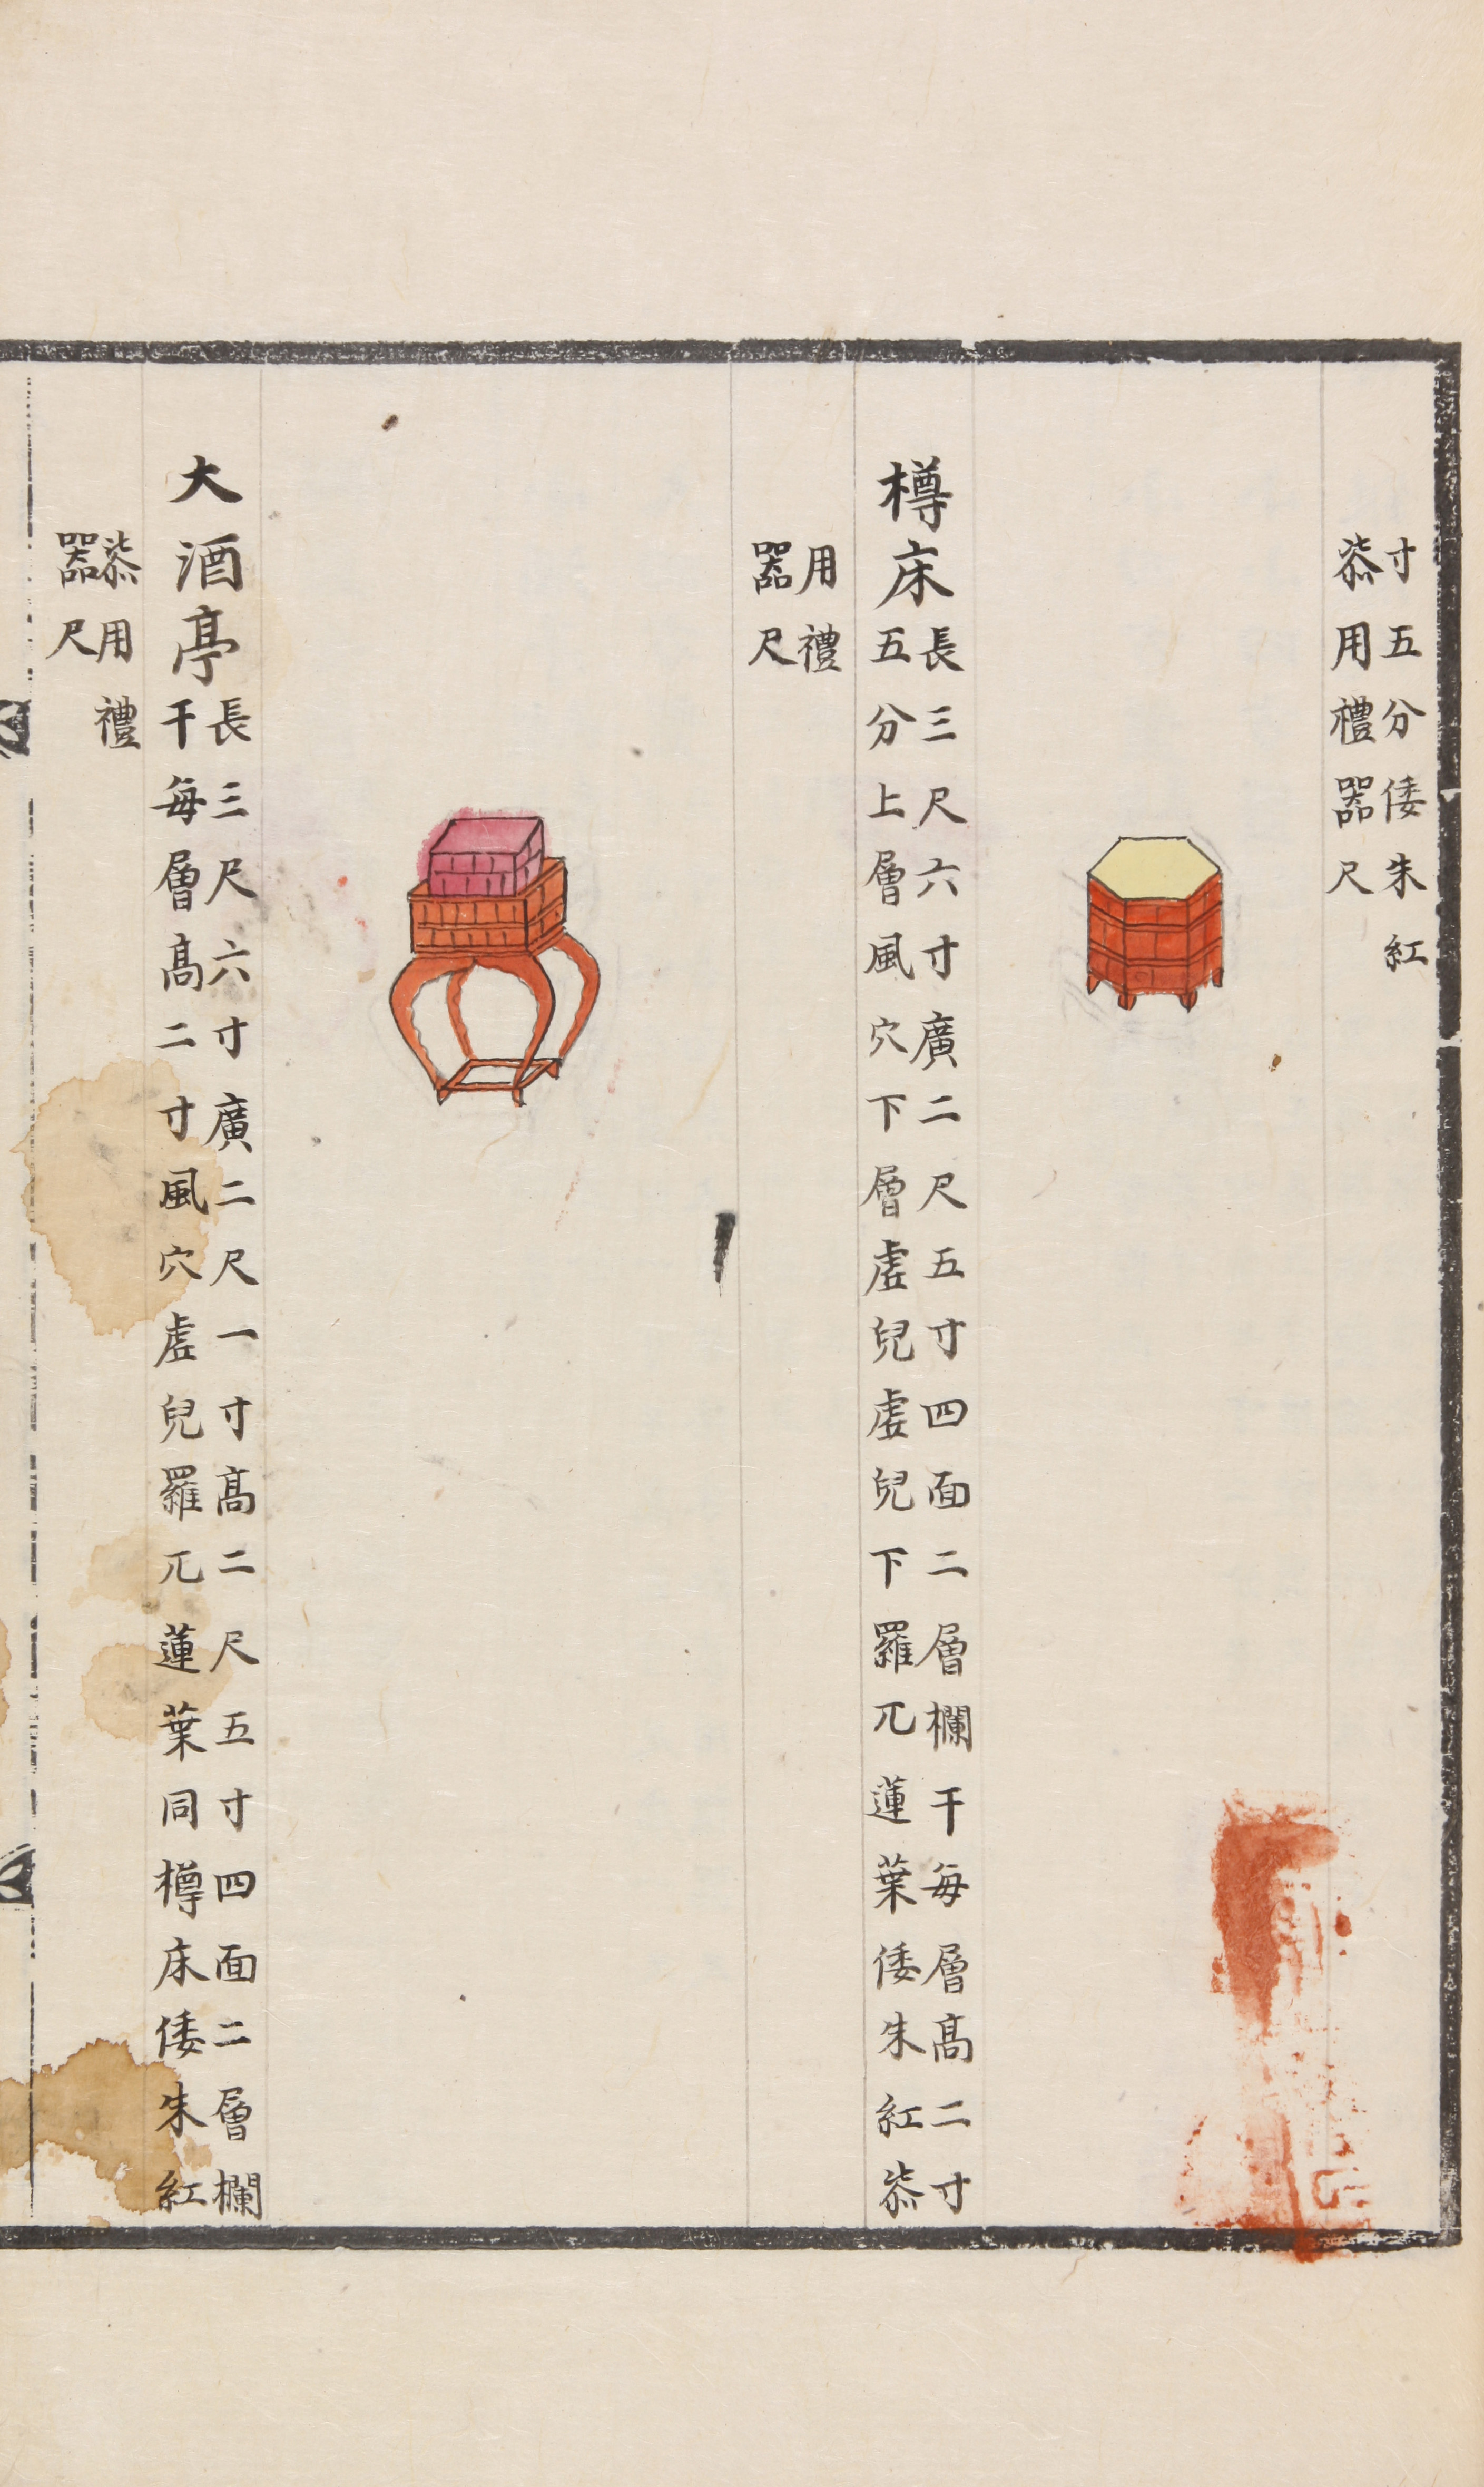 寸五分倭朱紅
㓒用禮器尺
樽床
長三尺六寸廣二尺五寸四面二層欄干每層髙二寸
五分上層風穴下層虛兒虛兒下羅兀蓮葉倭朱紅㓒
用禮
器尺
大酒亭
長三尺六寸廣二尺一寸髙二尺五寸四面二層欄
干每層髙二寸風穴虛兒羅兀蓮葉同樽床倭朱紅
㓒用禮
器尺